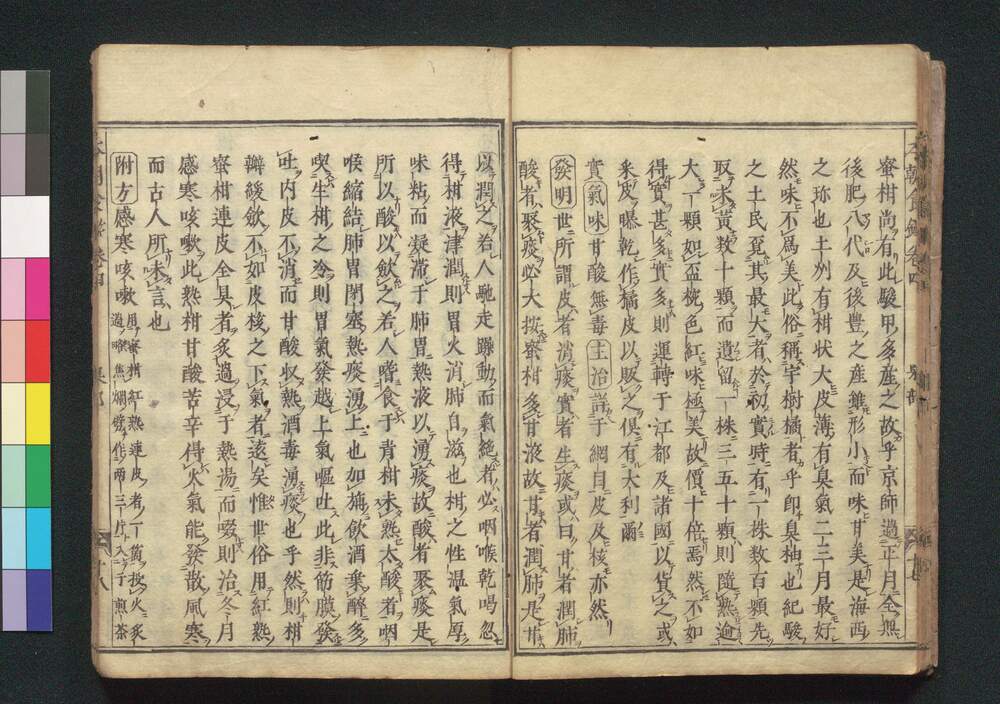 蜜柑尚有此駿甲多產之故乎京師過正月全無
後肥八代及後豐之産雖形小而味甘美是海西
之珎也土州有柑狀大皮薄有臭氣二三月最好
然味不爲美此俗稱宇樹橘者乎卽臭柚也紀駿
之土民覔其最大者於初實時有二株数百顆先
取未黃数十顆而遺留一株三五十顆則隨熟逾
大一顆如盃椀色紅味極美故價十倍焉然不如
得實甚多實多則運轉于江都及諸國以貨之或
采皮曝乾作橘皮以販之俱有大利爾
實氣味甘酸無毒主治詳于綱目皮及核亦然
發明世所謂皮者消痰實者生痰或曰甘者潤肺
酸者聚痰必大按蜜柑多甘液故甘者潤肺是甘
以潤之若人馳走躁動而氣絕者必咽喉乾喝忽
得柑液津潤則胃火消肺自滋也柑之性温氣厚
味粘而凝滯于肺胃熱液以湧痰故酸者聚痰是
所以酸以飲之若人嗜食于青柑未熟太酸者咽
喉縮結肺胃閉塞熱痰湧上也如旃飲酒乘醉多
喫生柑之冷則胃氣發越上氣嘔吐此非筋膜發
吐内皮不消而甘酸収熱酒毒湧痰也乎然則柑
瓣緩飲不如皮核之下氣者遠矣惟世俗用紅熟
蜜柑連皮全具者炙過浸于熱湯而啜則治冬月
感寒咳嗽此熟柑甘酸苦辛得火氣能發散風寒
而古人所未言也
附方感寒咳嗽用蜜柑紅熟連皮者一箇投火炙
過略焦爛劈作兩三片入于煎茶